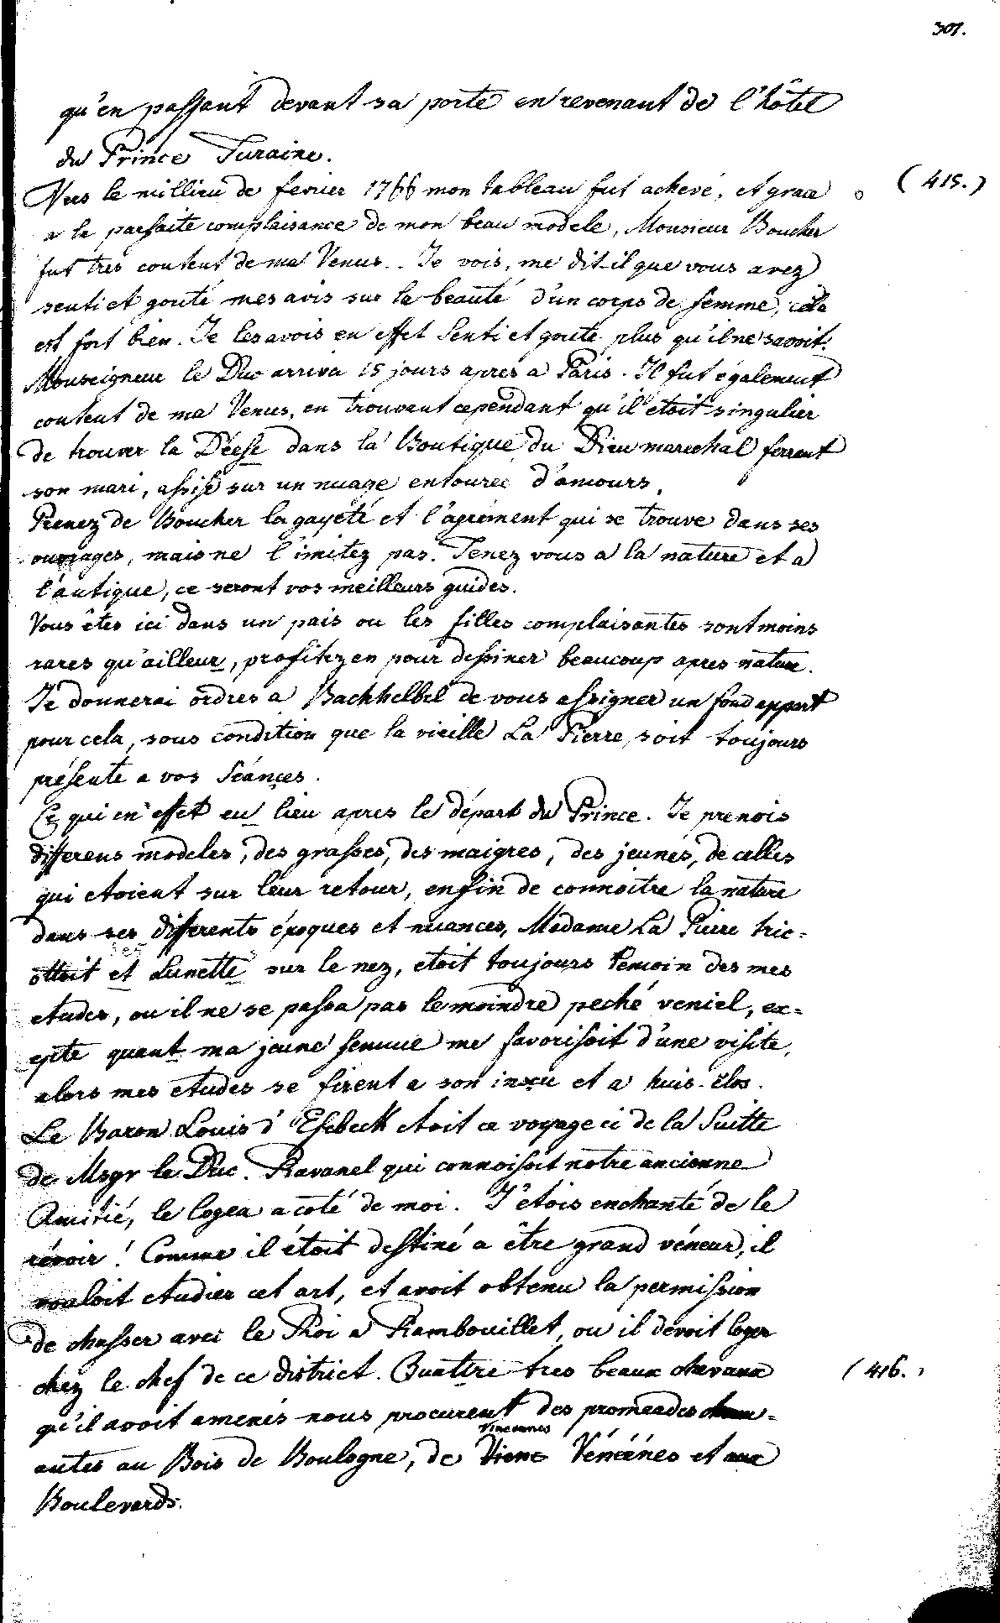 307.
qu'en passant devant sa porte en revenant de l'hôtel
du Prince Turaine.
Vers le millieu de fevrier 1766 mon tableau fut achevé, et grace
(415.)
a la parfaite complaisance de mon beau modele, Monsieur Boucher
fut tres content de ma Venus.. Je vois, me dit-il que vous avez
senti et gouté mes avis sur la beauté d'un corps de femme, cela
est fort bien. Je les avois en effet senti et gouté plus qu'il ne savoit.
Monseigneur le Duc arriva 15 jours apres a Paris. Il fut également
content de ma Venus, en trouvant cependant qu'il etoit singulier
de trouver la Déesse dans la Boutique du Dieu marechal ferrant
son mari, assise sur un nuage entouree d'amours.
Prenez de Boucher la gayeté et l'agrément qui se trouve dans ses
ouvrages, mais ne l'imitez pas. Tenez vous a la nature et a
l'antique, ce seront vos meilleurs guides.
Vous êtes ici dans un pais ou les filles complaisantes sont moins
rares qu'ailleur, profitez en pour dessiner beaucoup apres nature.
Je donnerai ordres a Bachhelbel de vous assigner un fond appart
pour cela, sous condition que la vieille La Pierre, soit toujours
présente a vos Séances.
Ce qui en effet eu lieu apres le départ du Prince. Je prenois
differens modeles, des grasses, des maigres, des jeunes, de celles
qui etoient sur leur retour, enfin de connoitre la nature
dans ses differents époques et nuances, Madame La Pierre tric-
ottoit et Lunette sur le nez, etoit toujours temoin des mes
etudes, ou il ne se passa pas le moindre peché veniel, ex-
epte quant ma jeune femme me favorisoit d'une visite,
alors mes etudes se firent a son inscu et a huis-clos.
Le Baron Louis d'Esebeck etoit ce voyage ci de la Suitte
de Msgr le Duc. Ravanel qui connoissoit notre ancienne
Amitié, le logea a coté de moi. J'etois enchanté de le
revoir! Comme il étoit destiné a être grand véneur, il
vouloit etudier cet art, et avoit obtenu la permission
de chasser avec le Roi a Rambouillet, ou il devoit loger
chez le chef de ce district. Quattre tres beaux chevaux
(416.)
qu'il avoit amenés nous procurent des promenades charm-
Vincennes
antes au Bois de Boulogne, de Venéénes et aux
Boulevards.